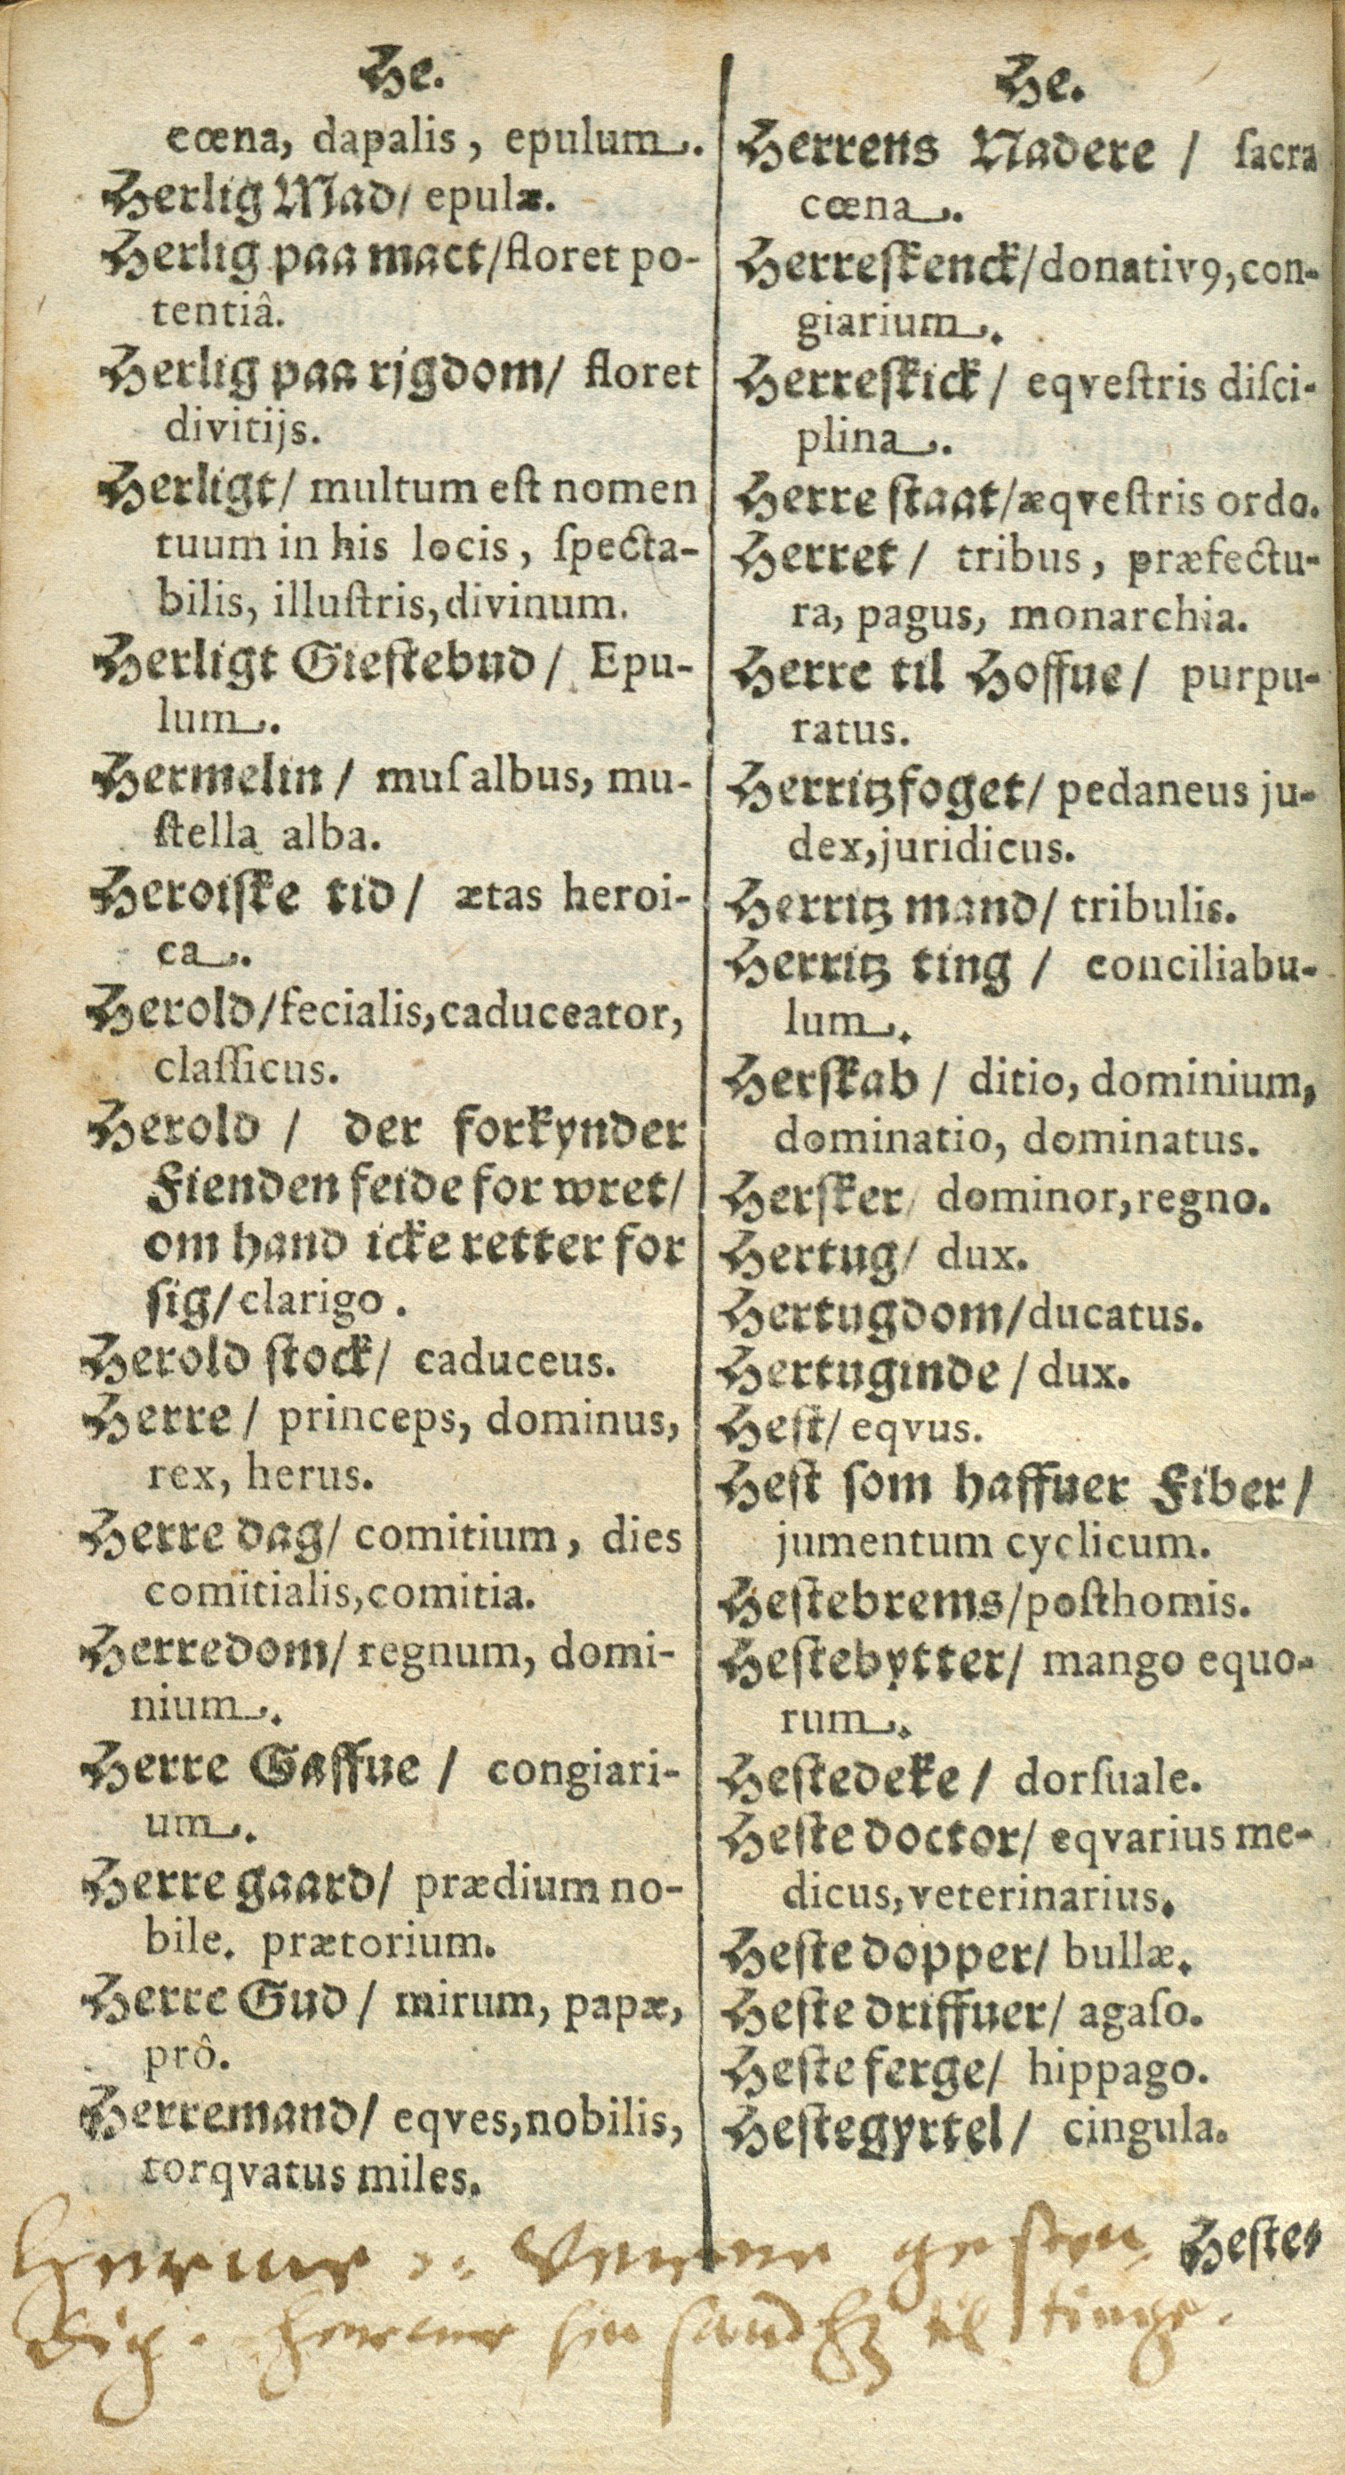 He.
cœna, dapalis, epulum.
Herlig Mad/ epulæ.
Herlig paa mact/floret po-
tentiâ.
Herlig paa rjgdom/ floret
divitijs.
Herligt/ multum eſt nomen
tuum in his locis, ſpecta-
bilis, illuſtris, divinum.
Herligt Gieſtebud/ Epu-
lum.
Hermelin/ muſ albus, mu-
ſtella alba.
Heroiſke tid/ ætas heroi-
ca.
Herold/fecialis, caduceator,
claſſicus.
Herold/ der forkynder
Fienden feide for wret/
om hand icke retter for
ſig/ clarigo.
Herold ſtock/ caduceus.
Herre/ princeps, dominus,
rex, herus.
Herre dag/ comitium, dies
comitialis, comitia.
Herredom/ regnum, domi-
nium.
Herre Gaffue/ congiari-
um.
Herre gaard/ prædium no-
bile. prætorium.
Herre Gud/ mirum, papæ,
prô.
Herremand/ eqves, nobilis,
torqvatus miles.
He.
Herrens Nadere/ ſacra
cœna.
Herreſkenck/donativꝰ, con-
giarium.
Herreſkick/ eqveſtris diſci-
plina.
Herre ſtaat/æqveſtris ordo.
Herret/ tribus, præfectu-
ra, pagus, monarchia.
Herre til Hoffue/ purpu-
ratus.
Herritzfoget/ pedaneus ju-
dex, juridicus.
Herritz mand/ tribulis.
Herritz ting/ conciliabu-
lum.
Herſkab/ ditio, dominium,
dominatio, dominatus.
Herſker/ dominor, regno.
Hertug/ dux.
Hertugdom/ducatus.
Hertuginde/ dux.
Heſt/ eqvus.
Heſt ſom haffuer Fiber/
jumentum cyclicum.
Heſtebrems/poſthomis.
Heſtebytter/ mango equo-
rum.
Heſtedeke/ dorſuale.
Heſte doctor/ eqvarius me-
dicus, veterinarius.
Heſte dopper/ bullæ.
Heſte driffuer/ agaſo.
Heſte ferge/ hippago.
Heſtegyrtel/ cingula.
Heſte-
til tinge.